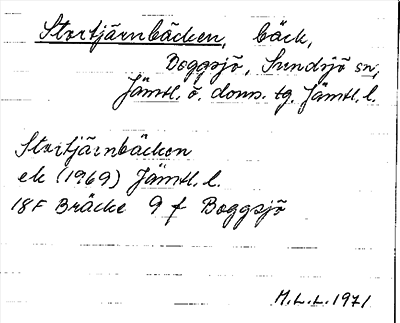 Stortjärnbäcken, bäck,
Boggsjö, Sundsjö sn,
Jämtl. ö. doms. tg. Jämtl. l.
Stortjärnbäcken
ek (1969) Jämtl. l.
18F Bräcke 9 f Boggsjö
M.L.L. 1971